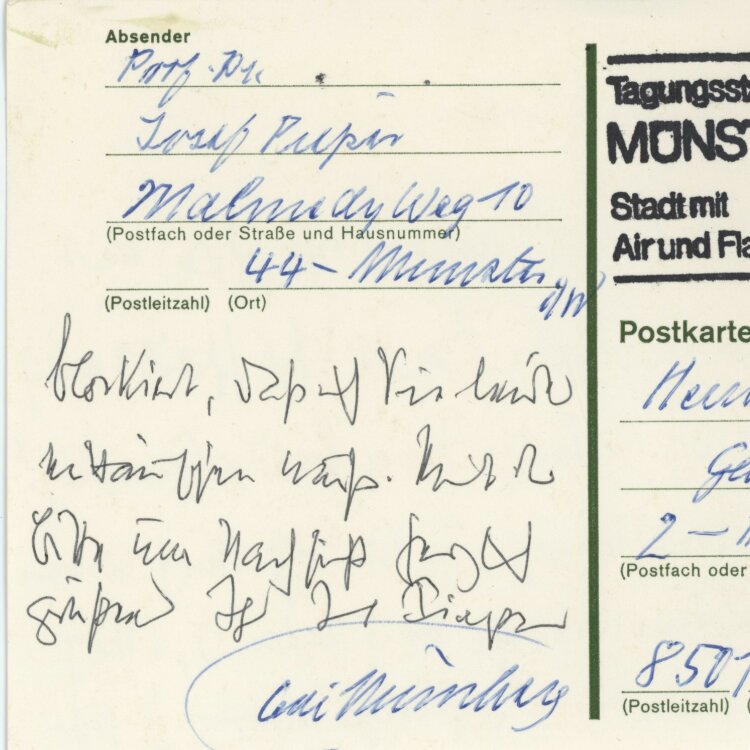 Absender
Prof. Dr.
Josef Pieper
Malmedy Weg 10
(Postfach oder Straße und Hausnummer)
44 - Münster
(Postleitzahl) (Ort)
blockiert, daß ich Sie leider
enttäuschen muß. Mit der
Bitte um Nachsicht
grüßend Ihr
bei Nürnberg
Tagungsst
MÜNS
Stadt mit
Air und Fla
Postkarte
2 -
(Postfach oder
8501
(Postleitzahl) (